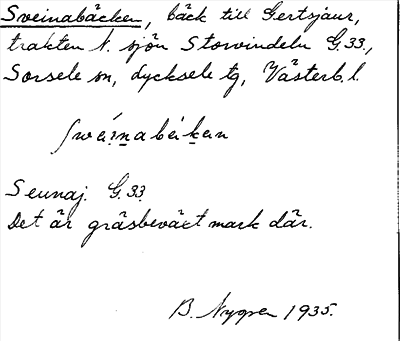 Sveinabäcken, bäck till Gertsjaur,
trakten N. sjön Storvindeln G.33.,
Sorsele sn, Lycksele tg, Västerb. l.
Seunaj. G.33
Det är gräsbeväxt mark där.
B. Nygren 1935.